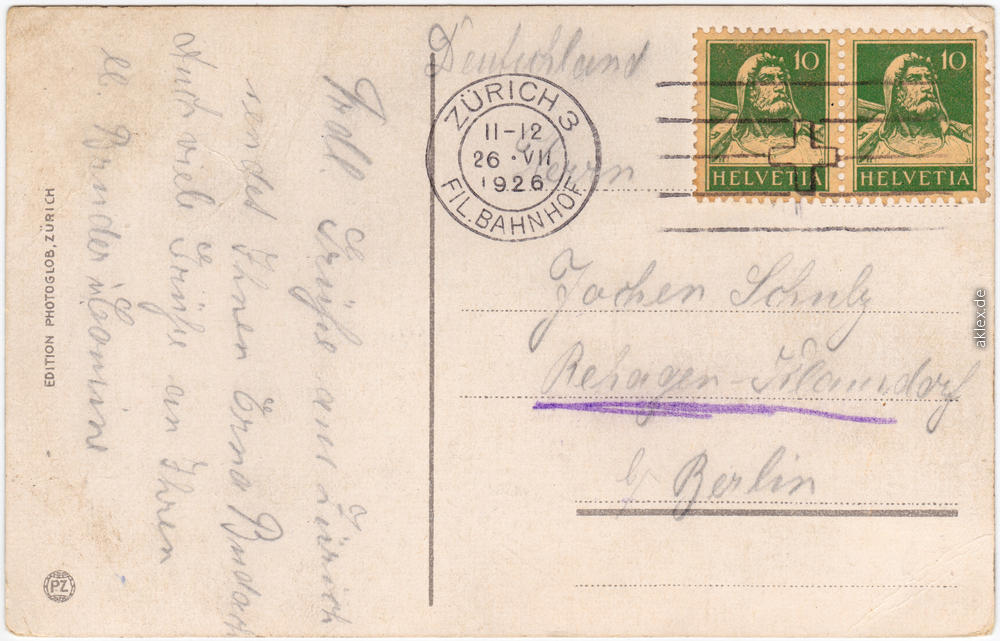 Deutschland
ZÜRICH 3
11-12
26·VII
1926
FIL. BAHNHOF
10
HELVETIA
10
HELVETIA
Herrn
Jochen Schulz
Rehagen-Klausdorf
b/ Berlin
Grüße aus Zürich
sendet Ihnen Erna
Auch viele Grüße an Ihren
Bruder
EDITION PHOTOGLOB, ZÜRICH
PZ
aklex.de